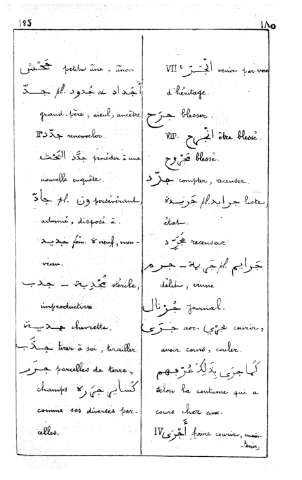 185
١٨٥
جحش petit âne, ânon
أجداد ة جدود pl. جدّ
grand-père, aïeul, ancêtre
II جدّد renouveler
جدّد البحث procéder à une
nouvelle enquête.
جادّ ون persévérant
adonné, disposé à.
جديد neuf, nou-
veau.
جدب – stérile,
improductive
chevrette.
جذب tirer à soi, tirailler
جرر parcelles de terre,
champs
comme ses diverses par-
celles.
VII انجرّ venir par voie
d'héritage.
جرح blesser.
VII انجرح être blessé.
مجروح blessé.
جرّد compter, recenser
جريدة pl. جرايد liste,
état.
recenseur
جرايم pl. جريمة – جرم
délits, crime
جرنال journal.
جرى aor. يجري courir,
avoir cours, couler.
كما جرى بذلك عرفهم
selon la coutume qui a
cours chez eux.
IV أجرى faire courir,